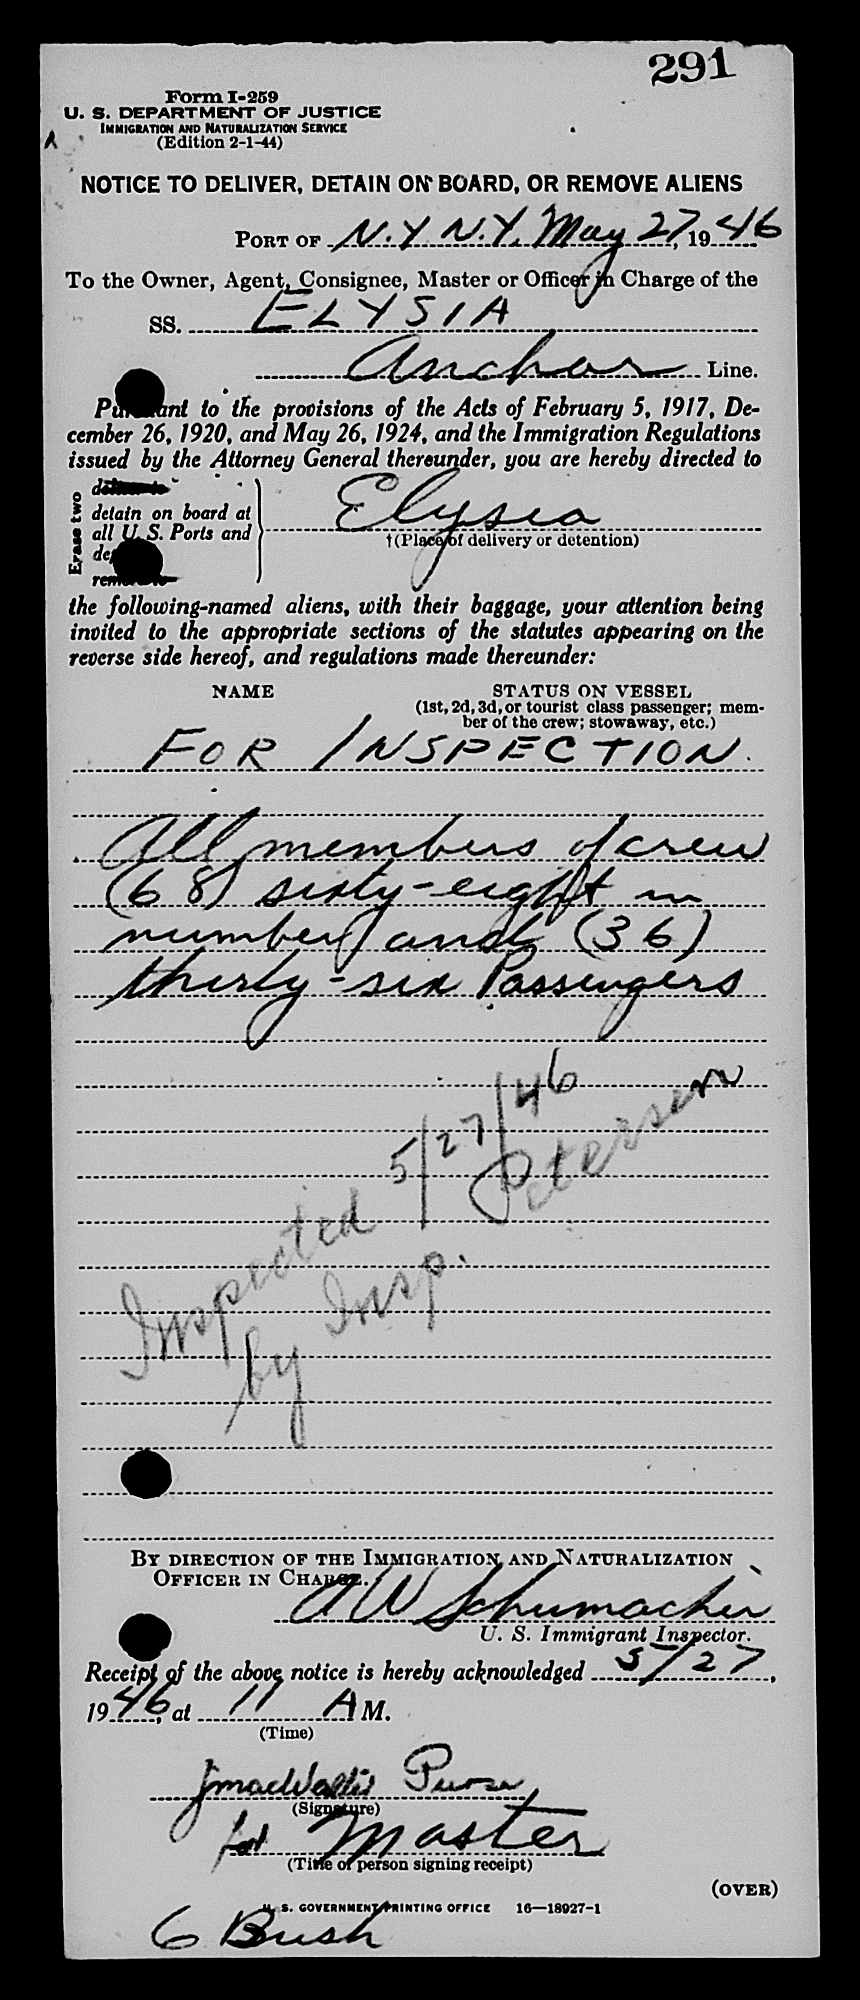 291
Form I-259
U. S. DEPARTMENT OF JUSTICE
IMMIGRATION AND NATURALIZATION SERVICE
(Edition 2-1-44)
NOTICE TO DELIVER, DETAIN ON BOARD, OR REMOVE ALIENS
PORT OF N.Y. N.Y. May 27, 1946
To the Owner, Agent, Consignee, Master or Officer in Charge of the
SS. ELYSIA
Anchor Line.
Pursuant to the provisions of the Acts of February 5, 1917, De-
cember 26, 1920, and May 26, 1924, and the Immigration Regulations
issued by the Attorney General thereunder, you are hereby directed to
Erase two
deliver to
detain on board at
all U. S. Ports and
remove to
Elysia
†(Place of delivery or detention)
the following-named aliens, with their baggage, your attention being
invited to the appropriate sections of the statutes appearing on the
reverse side hereof, and regulations made thereunder:
NAME STATUS ON VESSEL
(1st, 2d, 3d, or tourist class passenger; mem-
ber of the crew; stowaway, etc.)
FOR INSPECTION.
All members of crew
(68) sixty-eight in
number and (36)
thirty-six Passengers
Inspected 5/27/46
by Insp. Petersen
BY DIRECTION OF THE IMMIGRATION AND NATURALIZATION
OFFICER IN CHARGE.
A W Schumacher
U. S. Immigrant Inspector.
Receipt of the above notice is hereby acknowledged 5/27,
1946, at 11 A M.
(Time)
Purser
(Signature)
for Master
(Title of person signing receipt)
(OVER)
U. S. GOVERNMENT PRINTING OFFICE 16—18927-1
6 Bush